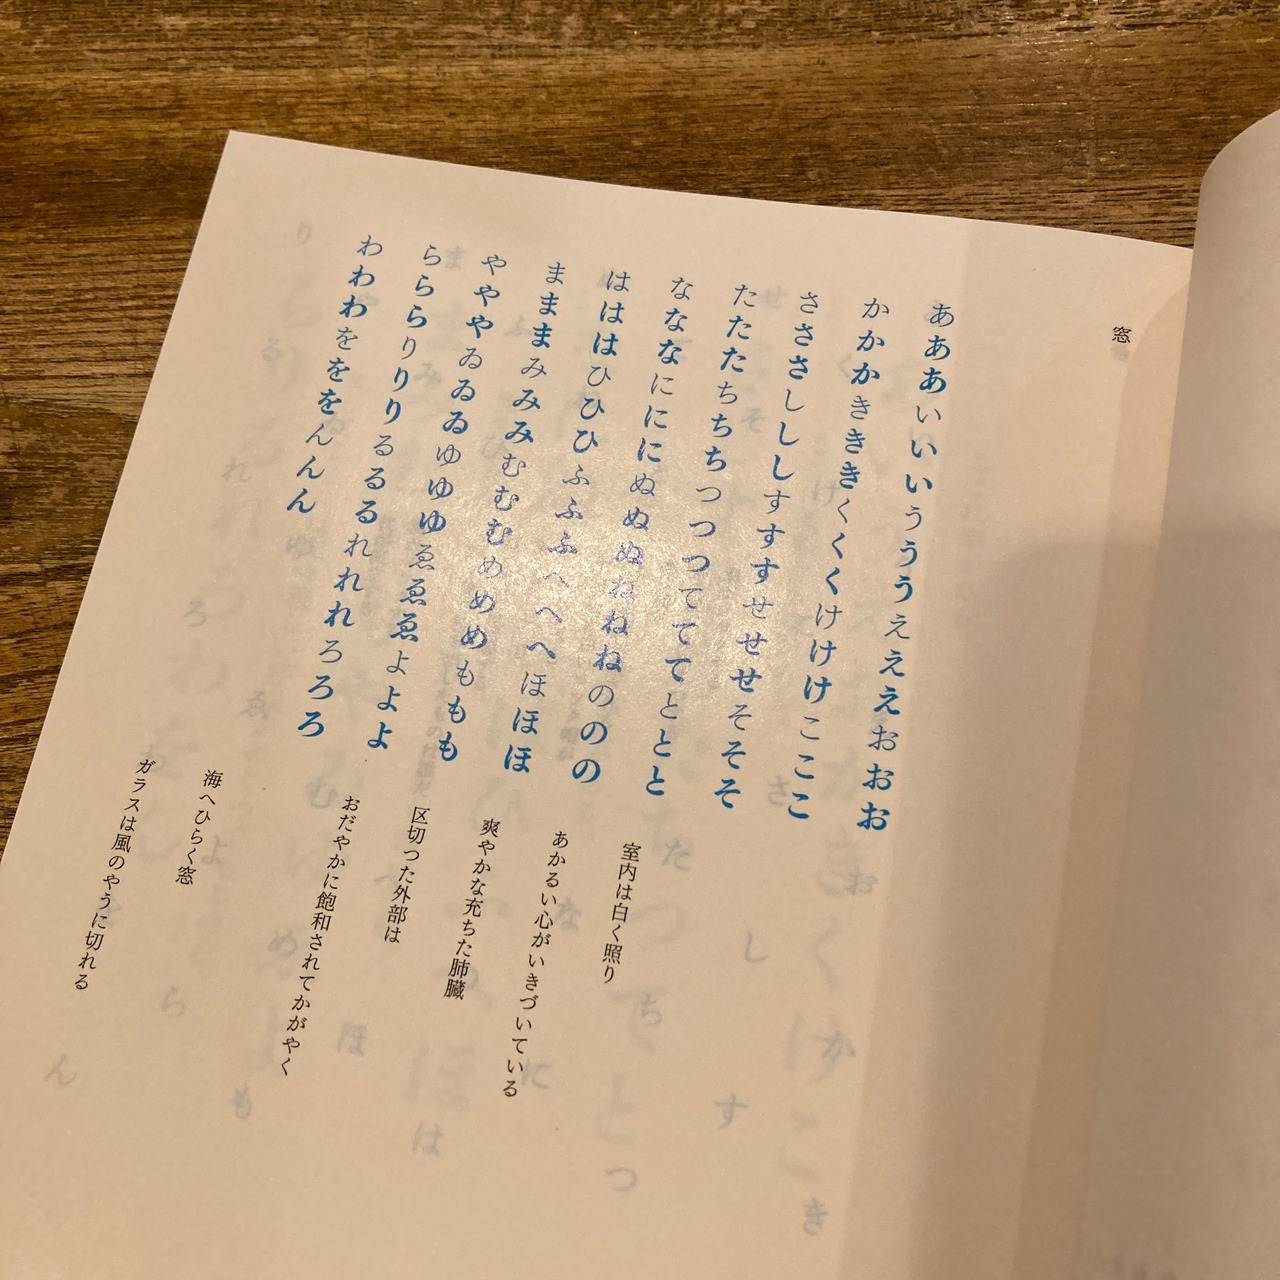 窓
あああいいいうううえええおおお
かかかきききくくくけけけこここ
さささしししすすすせせせそそそ
たたたちちちつつつてててととと
なななにににぬぬぬねねねののの
はははひひひふふふへへへほほほ
まままみみみむむむめめめももも
やややゐゐゐゆゆゆゑゑゑよよよ
らららりりりるるるれれれろろろ
わわわをををんんん
室内は白く照り
あかるい心がいきづいている
爽やかな充ちた肺臓
区切つた外部は
おだやかに飽和されてかがやく
海へひらく窓
ガラスは風のやうに切れる